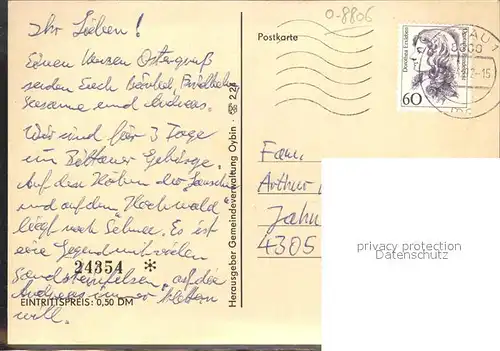 Ihr Lieben!
Einen kurzen Ostergruß
senden Euch Bärbel,
Susanne und Andreas.
Wir sind für 3 Tage
im Zittauer Gebirge.
Auf den Höhen der Lausche
und auf dem Hochwald
liegt noch Schnee. Es ist
eine Gegend mit vielen
Sandsteinfelsen, auf die
Andreas immer klettern
will.
24354 *
EINTRITTSPREIS: 0,50 DM
Herausgeber Gemeindeverwaltung Oybin · 2.24
0-8806
Postkarte
Dorothea Erxleben
60
Fam.
Arthur
Jahn
4305
privacy protection
Datenschutz